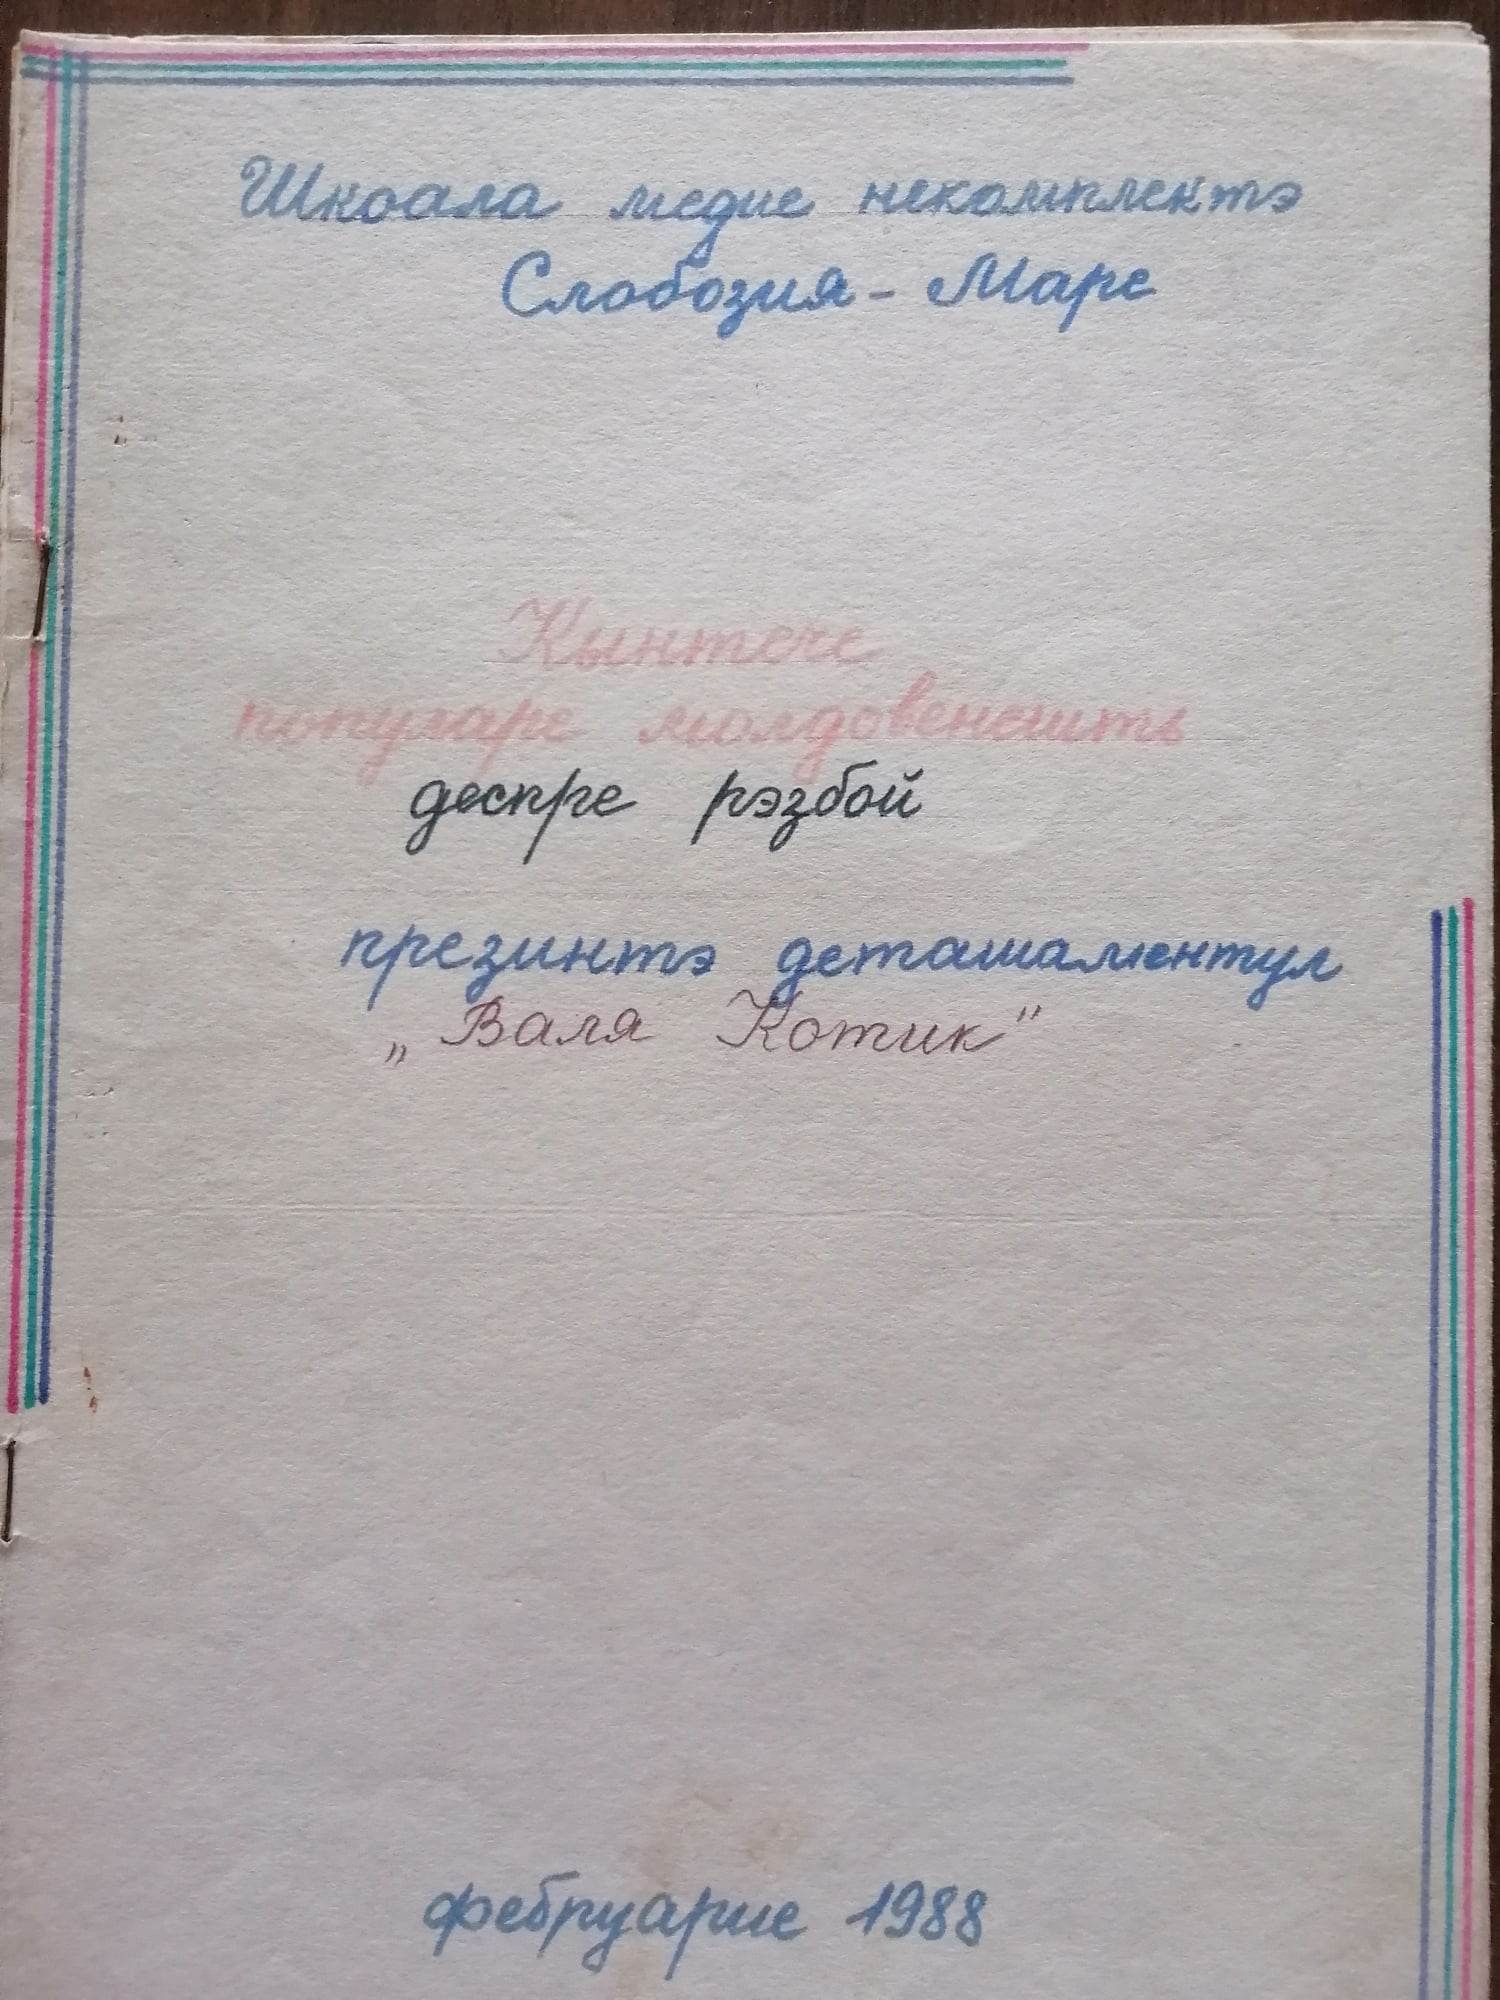 Школа медие некомплектэ
Слобозия - Маре
Кынтече
популаре молдовенешть
деспре рэзбой
презинтэ деташаментул
„Валя Котик"
фебруарие 1988